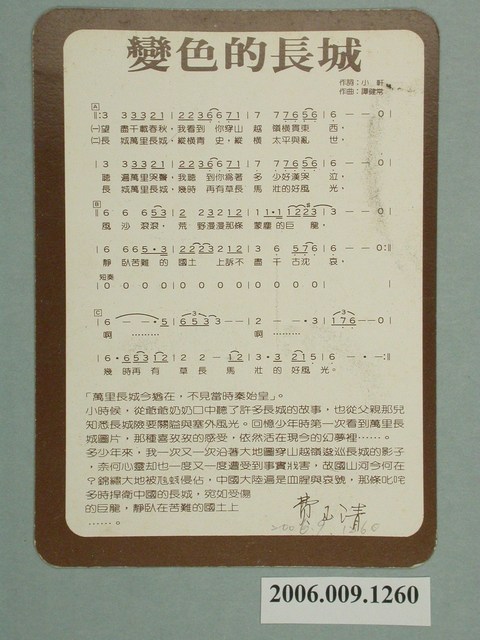 變色的長城
作詞：小 軒
作曲：譚健常
A
‖: 3 3 3321 | 2 2 3 6 6 7 1 | 7 7 7 6 5 6 | 6 — — 0 |
㈠望 盡千載春秋，我看到 你穿山 越 嶺橫貫東 西，
㈡長 城萬里長城，縱橫青 史，縱 橫 太平與亂 世，
| 3 3 3321 | 2 2 3 6 6 7 1 | 7 7 7 6 5 6 | 6 — — 0 |
聽 遍萬里哭聲，我聽 到你為著 多 少好漢哭 泣，
長 城萬里長城，幾時 再有草長 馬 壯的好風 光。
B
| 6 6 6 5 3 | 2 2 3 2 1 2 | 1 1 • 1 1 2 2 3 | 3 — — 0 |
風 沙 滾滾， 荒 野漫漫那條 蒙塵的巨 龍，
| 6 6 6 5 • 3 | 2 2 2 3 2 1 2 | 3 6 5 7 6 | 6 — — 0 :‖
靜 臥苦難 的 國土 上訴不 盡 千 古沈 哀，
短奏
| 0 0 0 0 | 0 0 0 0 | 0 0 0 0 | 0 0 0 0 |
C
| 6 — — • 5 | 6 5 3 3 — — | 2 — — • 3 | 1 7 6 — — 0 |
啊 ……… 啊 ………
| 6 • 6 5 3 1 2 | 2 2 — 1 2 | 3 • 3 2 1 5 | 6 — • — :‖
幾 時再有 草 長 馬 壯 的 好風 光。
「萬里長城今猶在，不見當時秦始皇」。
小時候，從爺爺奶奶口中聽了許多長城的故事，也從父親那兒
知悉長城險要關隘與塞外風光。回憶少年時第一次看到萬里長
城圖片，那種喜孜孜的感受，依然活在現今的幻夢裡……。
多少年來，我一次又一次沿著大地圖穿山越嶺遨巡長城的影子
，奈何心靈却也一度又一度遭受到事實戕害，故國山河今何在
？錦繡大地被尪蚘侵佔，中國大陸遍是血腥與哀號，那條叱咤
多時捍衛中國的長城，宛如受傷
的巨龍，靜臥在苦難的國土上
……。
費玉清
2006.009.1260